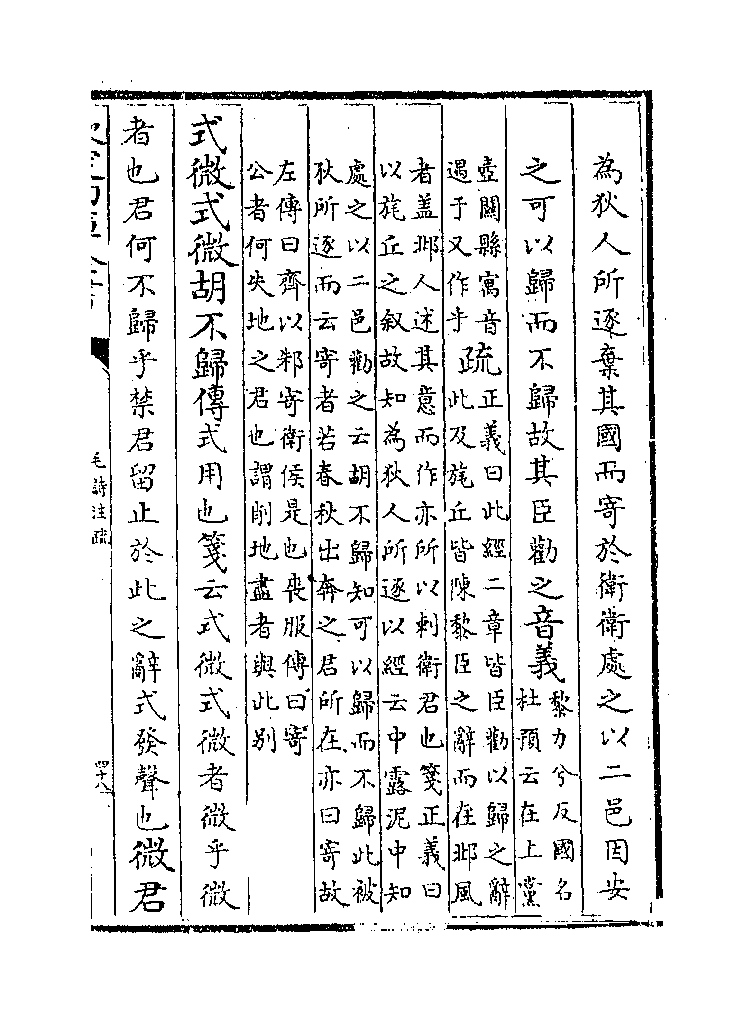 為狄人所逐棄其國而寄於衛衛處之以二邑因安
之可以歸而不歸故其臣勸之音義黎力兮反國名杜預云在上黨
壺關縣寓音遇于又作乎疏正義曰此經二章皆臣勸以歸之辭此及旄丘皆陳黎臣之辭而在邶風
者蓋邶人述其意而作亦所以刺衛君也箋正義曰
以旄丘之叙故知為狄人所逐以經云中露泥中知
處之以二邑勸之云胡不歸知可以歸而不歸此被
狄所逐而云寄者若春秋出奔之君所在亦曰寄故
左傳曰齊以郲寄衛侯是也喪服傳曰寄
公者何失地之君也謂削地盡者與此别
式微式微胡不歸傳式用也箋云式微式微者微乎微
者也君何不歸乎禁君留止於此之辭式發聲也微君
毛詩注疏
四十八